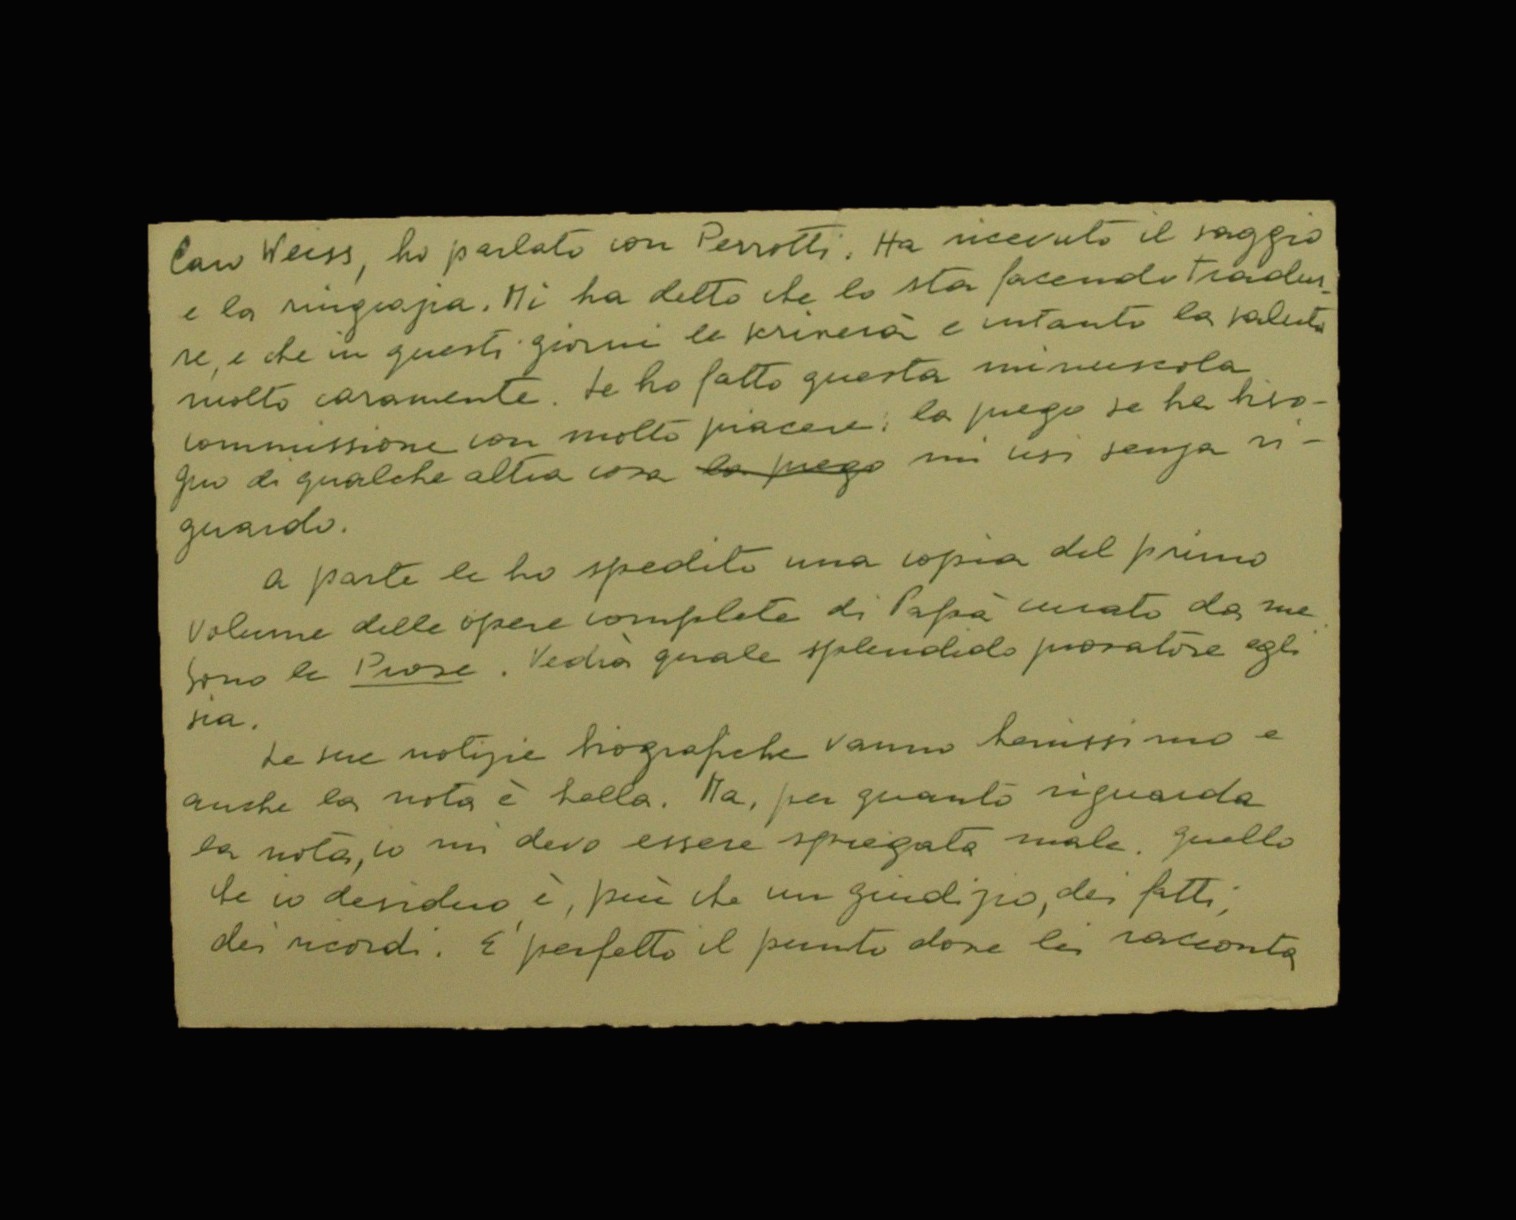 Caro Weiss, ho parlato con Perrotti. Ha ricevuto il saggio
e la ringrazia. Mi ha detto che lo sta facendo tradur-
re, e che in questi giorni le scriverà e intanto la saluta
molto caramente. Le ho fatto questa minuscola
commissione con molto piacere: la prego se ha biso-
gno di qualche altra cosa la prego mi usi senza ri-
guardo.
A parte le ho spedito una copia del primo
volume delle opere complete di Papà curato da me.
Sono le Prose. Vedrà quale splendido prosatore egli
sia.
Le sue notizie biografiche vanno benissimo e
anche la nota è bella. Ma, per quanto riguarda
la nota, io mi devo essere spiegata male. Quello
che io desidero è, più che un giudizio, dei fatti,
dei ricordi. E' perfetto il punto dove lei racconta